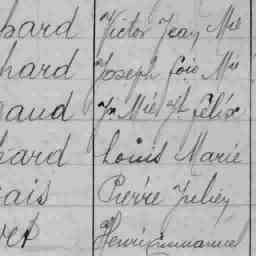 bard Victor Jean Mie
hard Joseph foie Mie
gaud Jn Mie Bte félix
bard Louis Marie
çais Pierre Julien
vet Henri Emmanuel